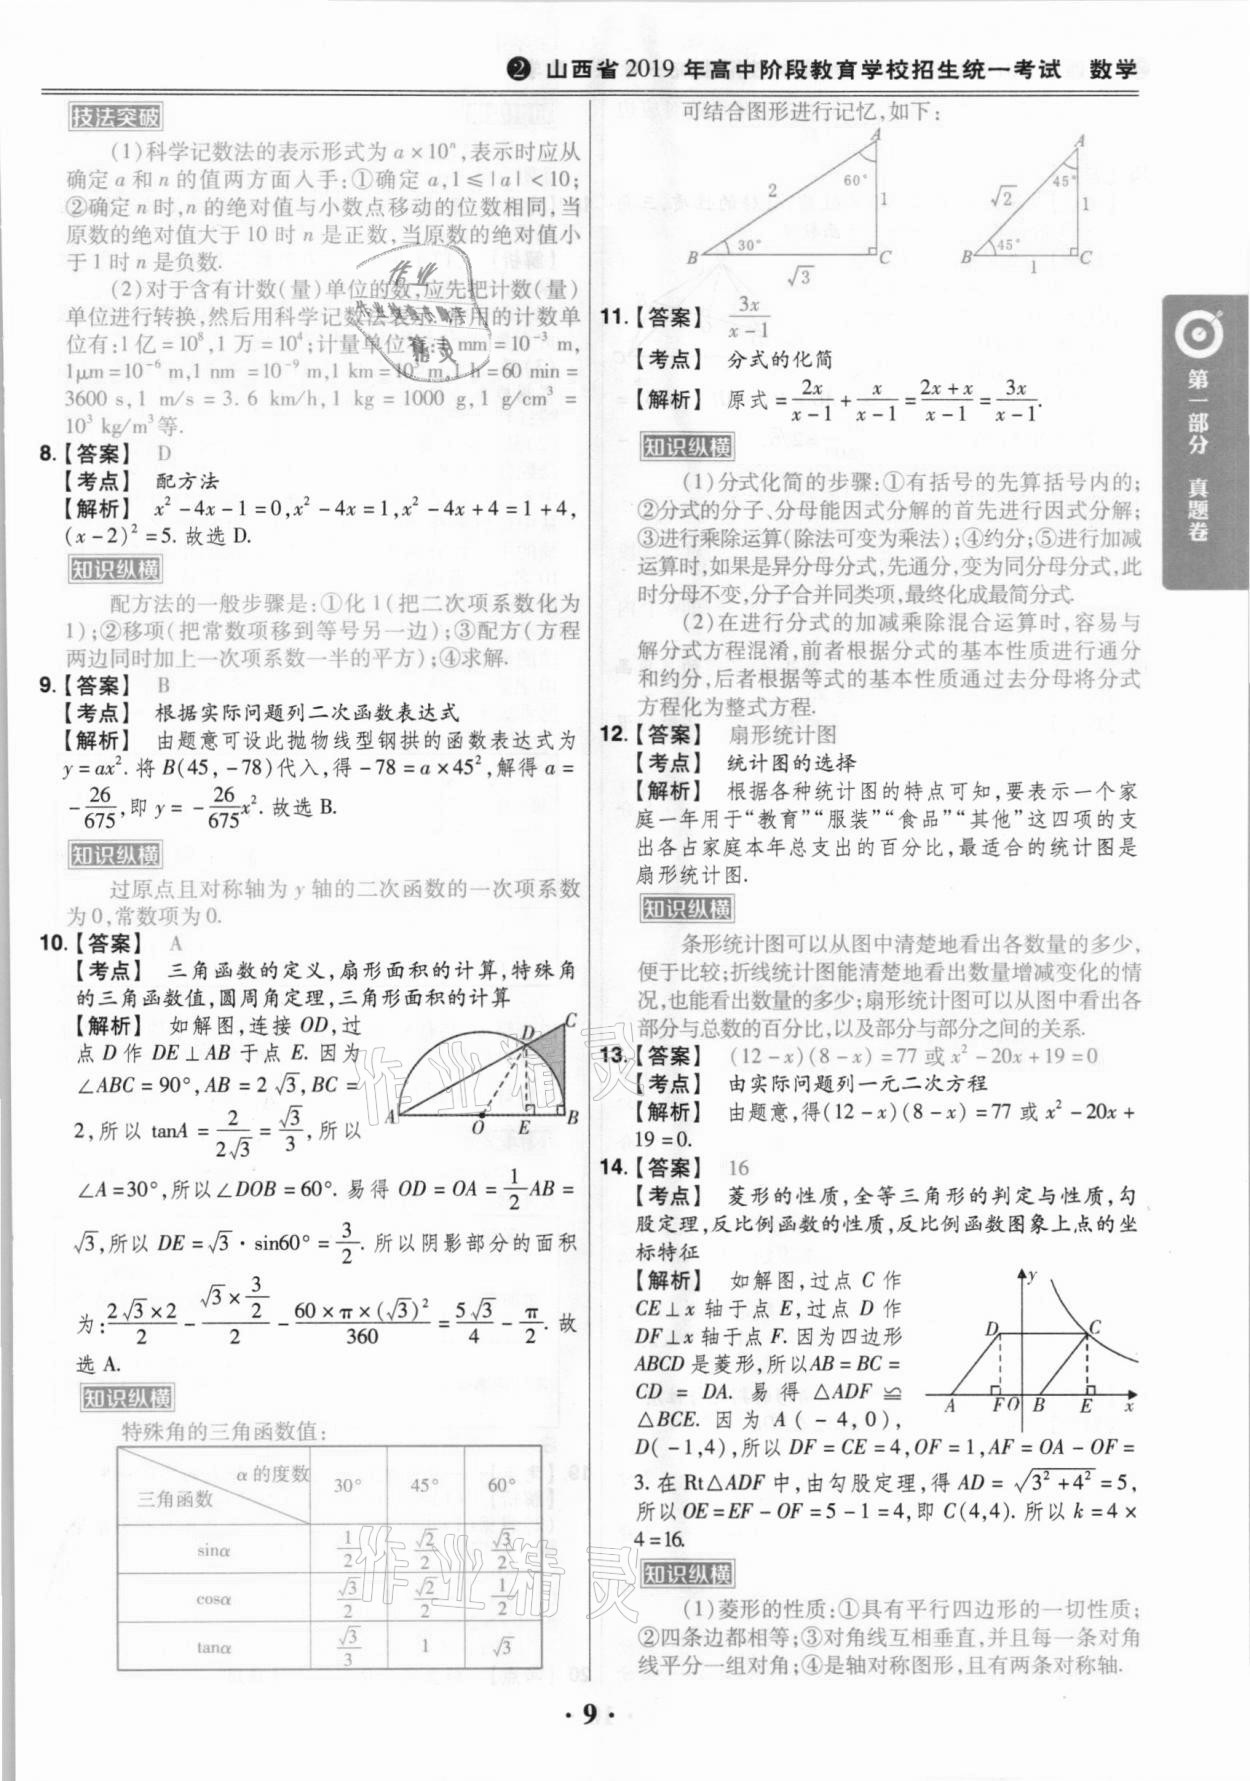 ❷ 山西省 2019 年高中阶段教育学校招生统一考试 数学
技法突破
(1)科学记数法的表示形式为 a×10ⁿ,表示时应从
确定 a 和 n 的值两方面入手:①确定 a,1≤|a|<10;
②确定 n 时,n 的绝对值与小数点移动的位数相同,当
原数的绝对值大于 10 时 n 是正数,当原数的绝对值小
于 1 时 n 是负数.
(2)对于含有计数(量)单位的数,应先把计数(量)
单位进行转换,然后用科学记数法表示.常用的计数单
位有:1 亿=10⁸,1 万=10⁴;计量单位有:1 mm=10⁻³ m,
1μm=10⁻⁶ m,1 nm=10⁻⁹ m,1 km=10³ m,1 h=60 min=
3600 s,1 m/s=3.6 km/h,1 kg=1000 g,1 g/cm³=
10³ kg/m³等.
8.【答案】 D
【考点】 配方法
【解析】 x²-4x-1=0,x²-4x=1,x²-4x+4=1+4,
(x-2)²=5. 故选 D.
知识纵横
配方法的一般步骤是:①化 1(把二次项系数化为
1);②移项(把常数项移到等号另一边);③配方(方程
两边同时加上一次项系数一半的平方);④求解.
9.【答案】 B
【考点】 根据实际问题列二次函数表达式
【解析】 由题意可设此抛物线型钢拱的函数表达式为
y=ax². 将 B(45,-78)代入,得-78=a×45²,解得 a=
-26/675,即 y=-26/675x². 故选 B.
知识纵横
过原点且对称轴为 y 轴的二次函数的一次项系数
为 0,常数项为 0.
10.【答案】 A
【考点】 三角函数的定义,扇形面积的计算,特殊角
的三角函数值,圆周角定理,三角形面积的计算
【解析】 如解图,连接 OD,过
点 D 作 DE⊥AB 于点 E. 因为
∠ABC=90°,AB=2√3,BC=
2,所以 tanA=2/2√3=√3/3,所以
A O E B D C
∠A=30°,所以∠DOB=60°. 易得 OD=OA=1/2AB=
√3,所以 DE=√3·sin60°=3/2. 所以阴影部分的面积
为:2√3×2/2-√3×3/2/2-60×π×(√3)²/360=5√3/4-π/2. 故
选 A.
知识纵横
特殊角的三角函数值:
α 的度数 三角函数 30° 45° 60°
sinα 1/2 √2/2 √3/2
cosα √3/2 √2/2 1/2
tanα √3/3 1 √3
可结合图形进行记忆,如下:
A 60° 2 1 B 30° C √3
A 45° √2 1 B 45° C 1
11.【答案】 3x/x-1
【考点】 分式的化简
【解析】 原式=2x/x-1+x/x-1=2x+x/x-1=3x/x-1.
知识纵横
(1)分式化简的步骤:①有括号的先算括号内的;
②分式的分子、分母能因式分解的首先进行因式分解;
③进行乘除运算(除法可变为乘法);④约分;⑤进行加减
运算时,如果是异分母分式,先通分,变为同分母分式,此
时分母不变,分子合并同类项,最终化成最简分式.
(2)在进行分式的加减乘除混合运算时,容易与
解分式方程混淆,前者根据分式的基本性质进行通分
和约分,后者根据等式的基本性质通过去分母将分式
方程化为整式方程.
12.【答案】 扇形统计图
【考点】 统计图的选择
【解析】 根据各种统计图的特点可知,要表示一个家
庭一年用于“教育”“服装”“食品”“其他”这四项的支
出各占家庭本年总支出的百分比,最适合的统计图是
扇形统计图.
知识纵横
条形统计图可以从图中清楚地看出各数量的多少,
便于比较;折线统计图能清楚地看出数量增减变化的情
况,也能看出数量的多少;扇形统计图可以从图中看出各
部分与总数的百分比,以及部分与部分之间的关系.
13.【答案】 (12-x)(8-x)=77 或 x²-20x+19=0
【考点】 由实际问题列一元二次方程
【解析】 由题意,得(12-x)(8-x)=77 或 x²-20x+
19=0.
14.【答案】 16
【考点】 菱形的性质,全等三角形的判定与性质,勾
股定理,反比例函数的性质,反比例函数图象上点的坐
标特征
【解析】 如解图,过点 C 作
CE⊥x 轴于点 E,过点 D 作
DF⊥x 轴于点 F. 因为四边形
ABCD 是菱形,所以AB=BC=
CD=DA. 易得△ADF≌
△BCE. 因为 A(-4,0),
y D C A F O B E x
D(-1,4),所以 DF=CE=4,OF=1,AF=OA-OF=
3. 在 Rt△ADF 中,由勾股定理,得 AD=√3²+4²=5,
所以 OE=EF-OF=5-1=4,即 C(4,4). 所以 k=4×
4=16.
知识纵横
(1)菱形的性质:①具有平行四边形的一切性质;
②四条边都相等;③对角线互相垂直,并且每一条对角
线平分一组对角;④是轴对称图形,且有两条对称轴.
第一部分 真题卷
· 9 ·
作业精灵
作业精灵